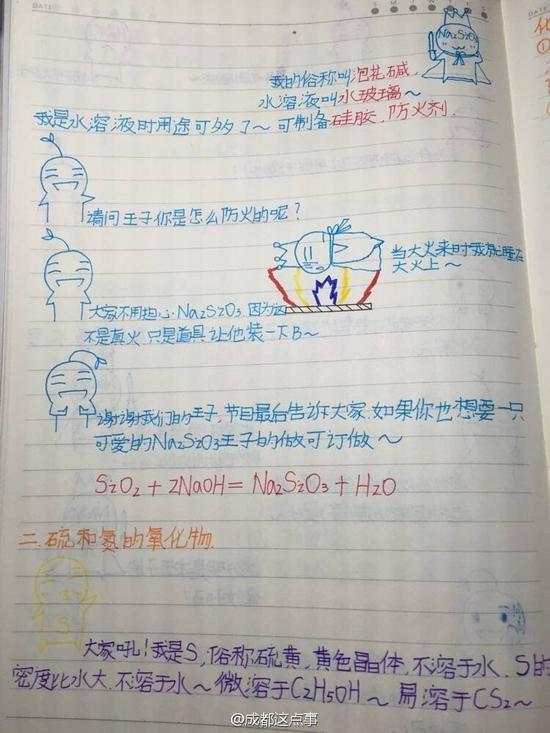 Na₂SiO₃
我的俗称叫泡花碱,
水溶液叫水玻璃~
我是水溶液时用途可多了~可制备硅胶,防火剂.
请问王子你是怎么防火的呢?
当大火来时我就睡在
大火上~
大家不用担心Na₂SiO₃,因为这
不是真火,只是道具让他装一下B~
谢谢我们的王子,节目最后告诉大家,如果你也想要一只
可爱的Na₂SiO₃王子的做可订做~
SiO₂+2NaOH=Na₂SiO₃+H₂O
二.硫和氮的氧化物.
S
大家吼!我是S,俗称硫黄,黄色晶体,不溶于水,S的
密度比水大,不溶于水~微溶于C₂H₅OH~易溶于CS₂~
@成都这点事